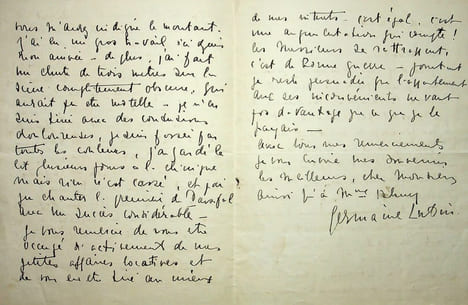 vous m'aurez indiqué le montant.
J'ai eu un gros travail ici depuis
mon arrivée - de plus, j'ai fait
une chute de trois mètres sur la
scène complètement obscure, qui
aurait pu être mortelle - je m'en
suis tirée avec des contusions
douloureuses, je suis passée par
toutes les couleurs, j'ai gardé le
lit plusieurs jours à la clinique
mais rien n'est cassé, et puis
je chanter le premier Parsifal
avec un succès considérable -
je vous remercie de vous être
occupé si activement de mes
petites affaires locatives et
de vous en être tiré au mieux
de mes intérêts - c'est égal, c'est
une augmentation qui compte!
les Messieurs se rattrapent,
c'est de bonne guerre - pourtant
je reste persuadée que l'appartement
avec ses inconvénients ne vaut
pas davantage que ce que je
payais -
avec tous mes remerciements
je vous envoie mes souvenirs
les meilleurs, cher Monsieur
ainsi qu'à Mme
Germaine Lubin.